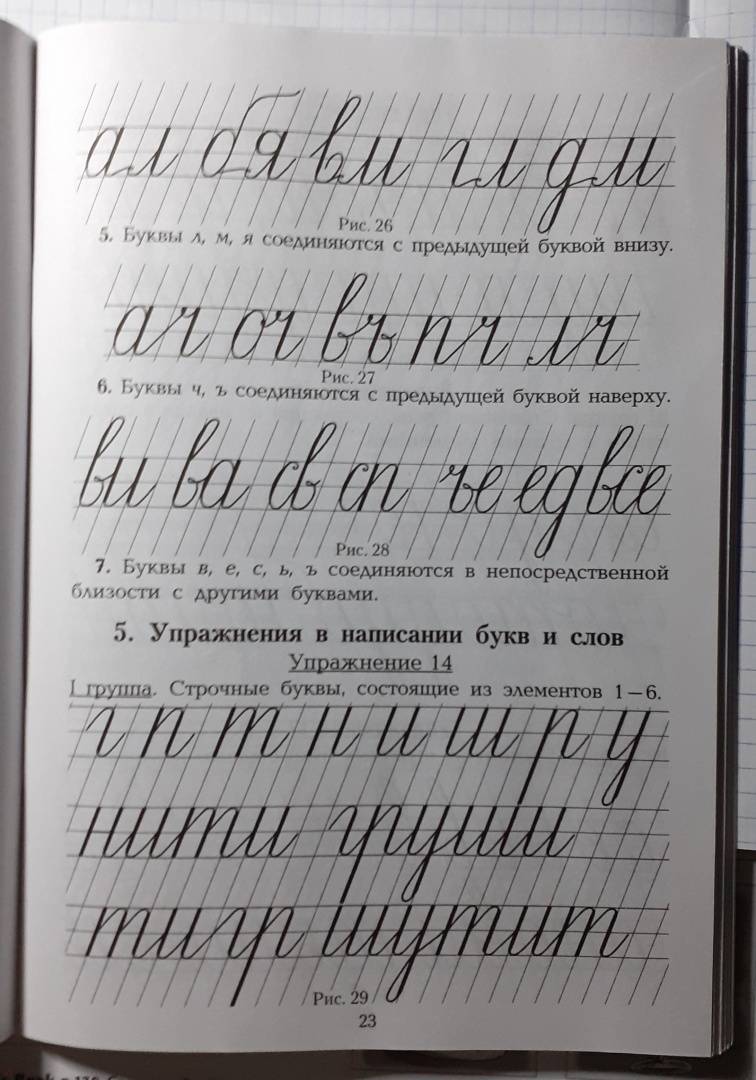 ал бя вм гл дм
Рис. 26
5. Буквы л, м, я соединяются с предыдущей буквой внизу.
ач оч въ пч лч
Рис. 27
6. Буквы ч, ъ соединяются с предыдущей буквой наверху.
ви ва св сп ъе ед все
Рис. 28
7. Буквы в, е, с, ь, ъ соединяются в непосредственной
близости с другими буквами.
5. Упражнения в написании букв и слов
Упражнение 14
I группа. Строчные буквы, состоящие из элементов 1—6.
г п т н и ш р у
нити груши
тигр шутит
Рис. 29
23